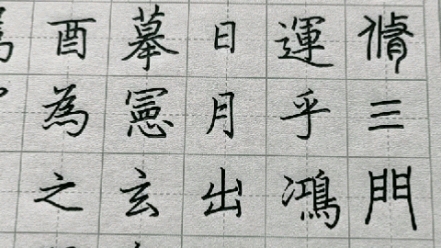 脩三門
運乎鴻
日月出
摹憲玄
酉為之